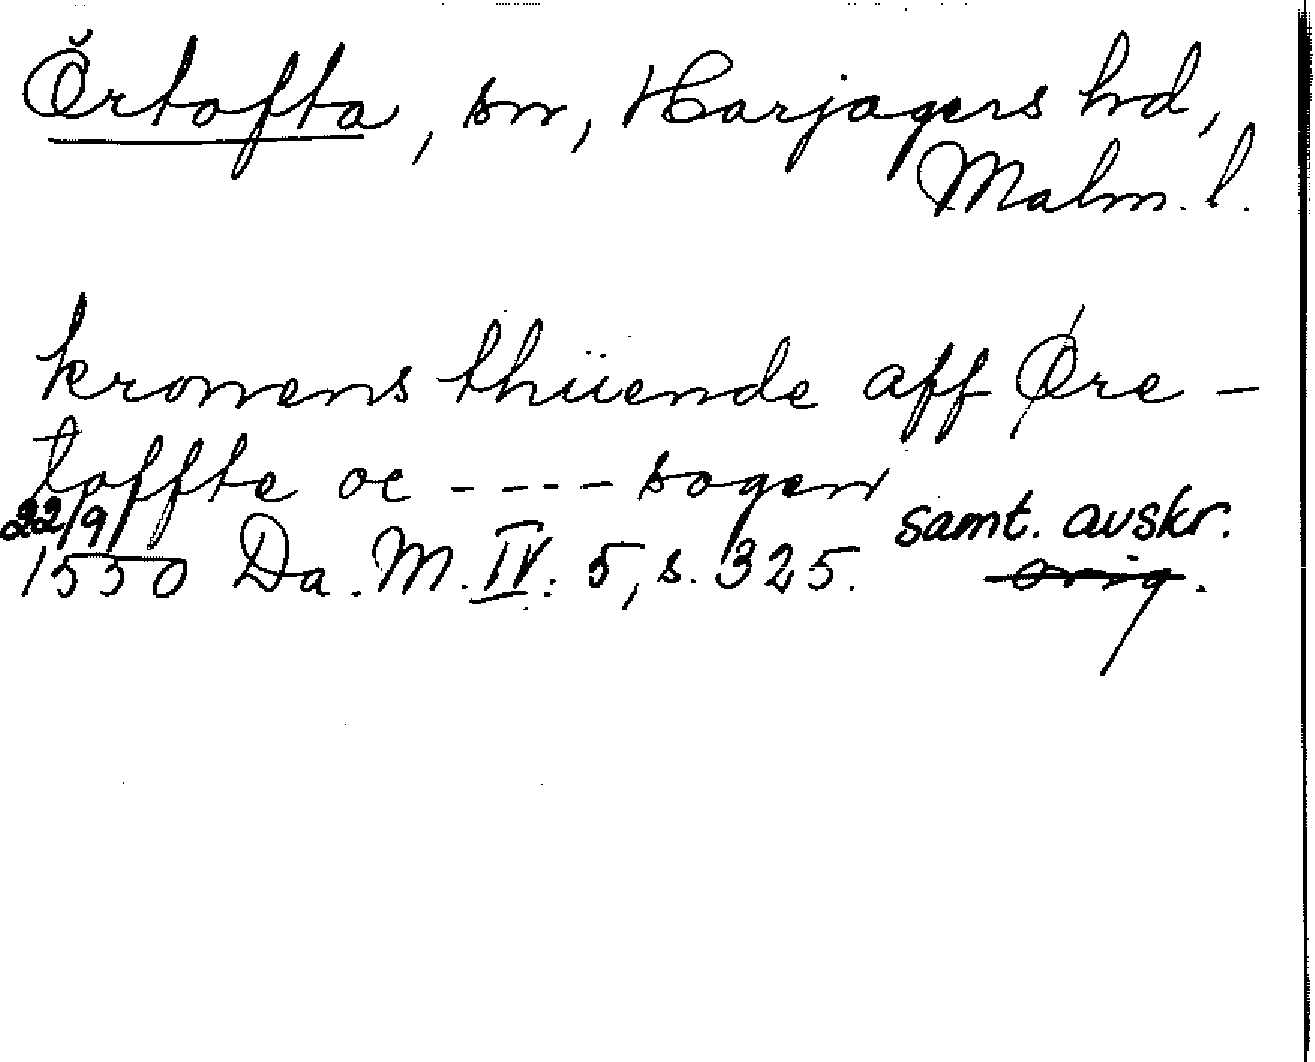 Örtofta, sn, Harjagers hd,
Malm. l.
kronens thiiende aff Øre-
toffte oc ---- sogen
22/9
1550 Da. M. IV: 5, s. 325. samt. avskr.
orig.